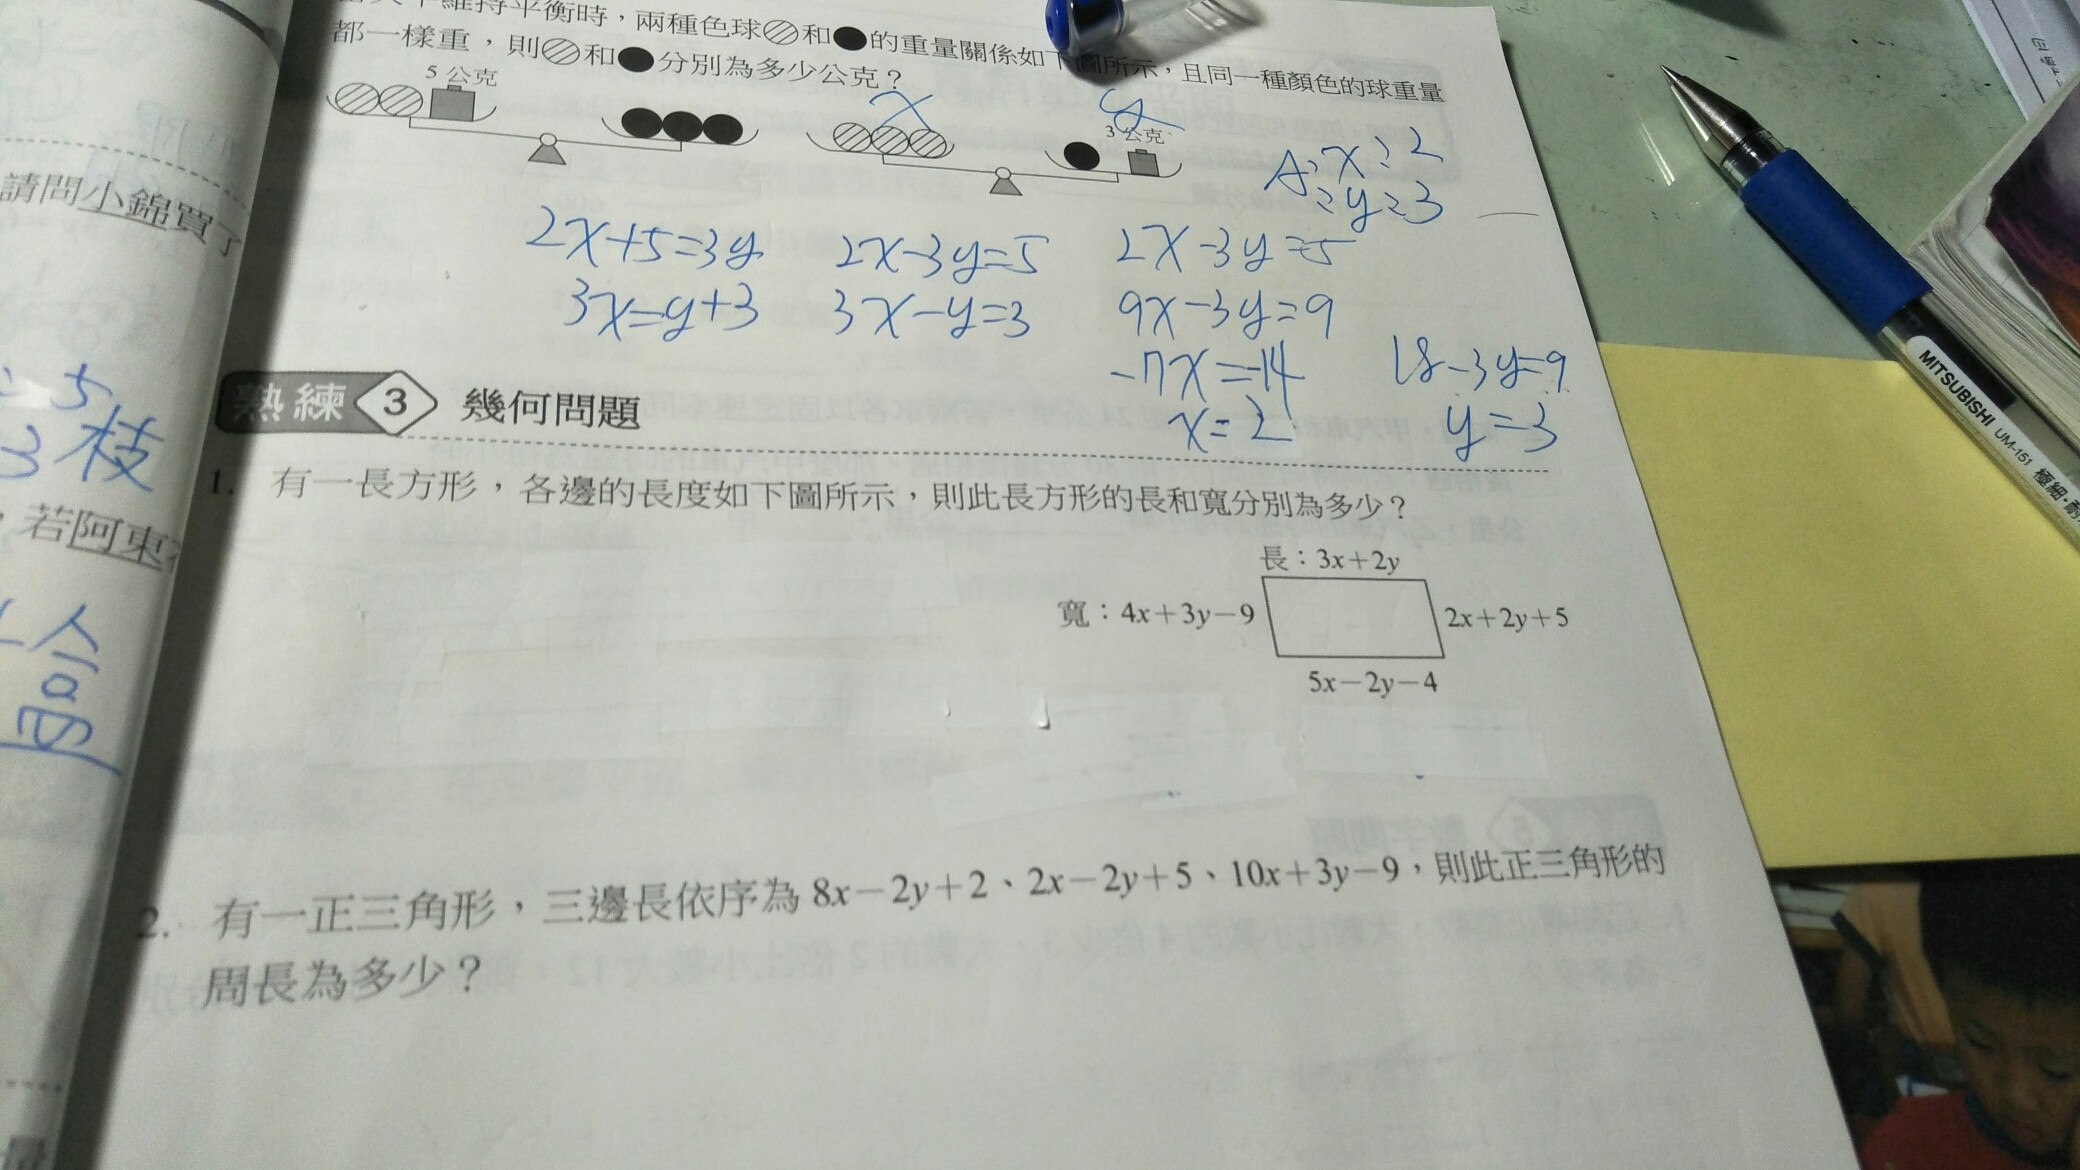 維持平衡時，兩種色球和的重量關係如下圖所示，且同一種顏色的球重量
都一樣重，則和分別為多少公克？
5 公克
x
y
3 公克
A：x＝2
y＝3
2x+5=3y 2x-3y=5 2x-3y=5
3x=y+3 3x-y=3 9x-3y=9
-7x=-14 18-3y=9
x=2 y=3
熟練 3 幾何問題
1. 有一長方形，各邊的長度如下圖所示，則此長方形的長和寬分別為多少？
長：3x＋2y
寬：4x＋3y－9
2x＋2y＋5
5x－2y－4
2. 有一正三角形，三邊長依序為 8x－2y＋2、2x－2y＋5、10x＋3y－9，則此正三角形的
周長為多少？
請問小錦買了
5
3枝
，若阿東
盒
MITSUBISHI UM-151 極細